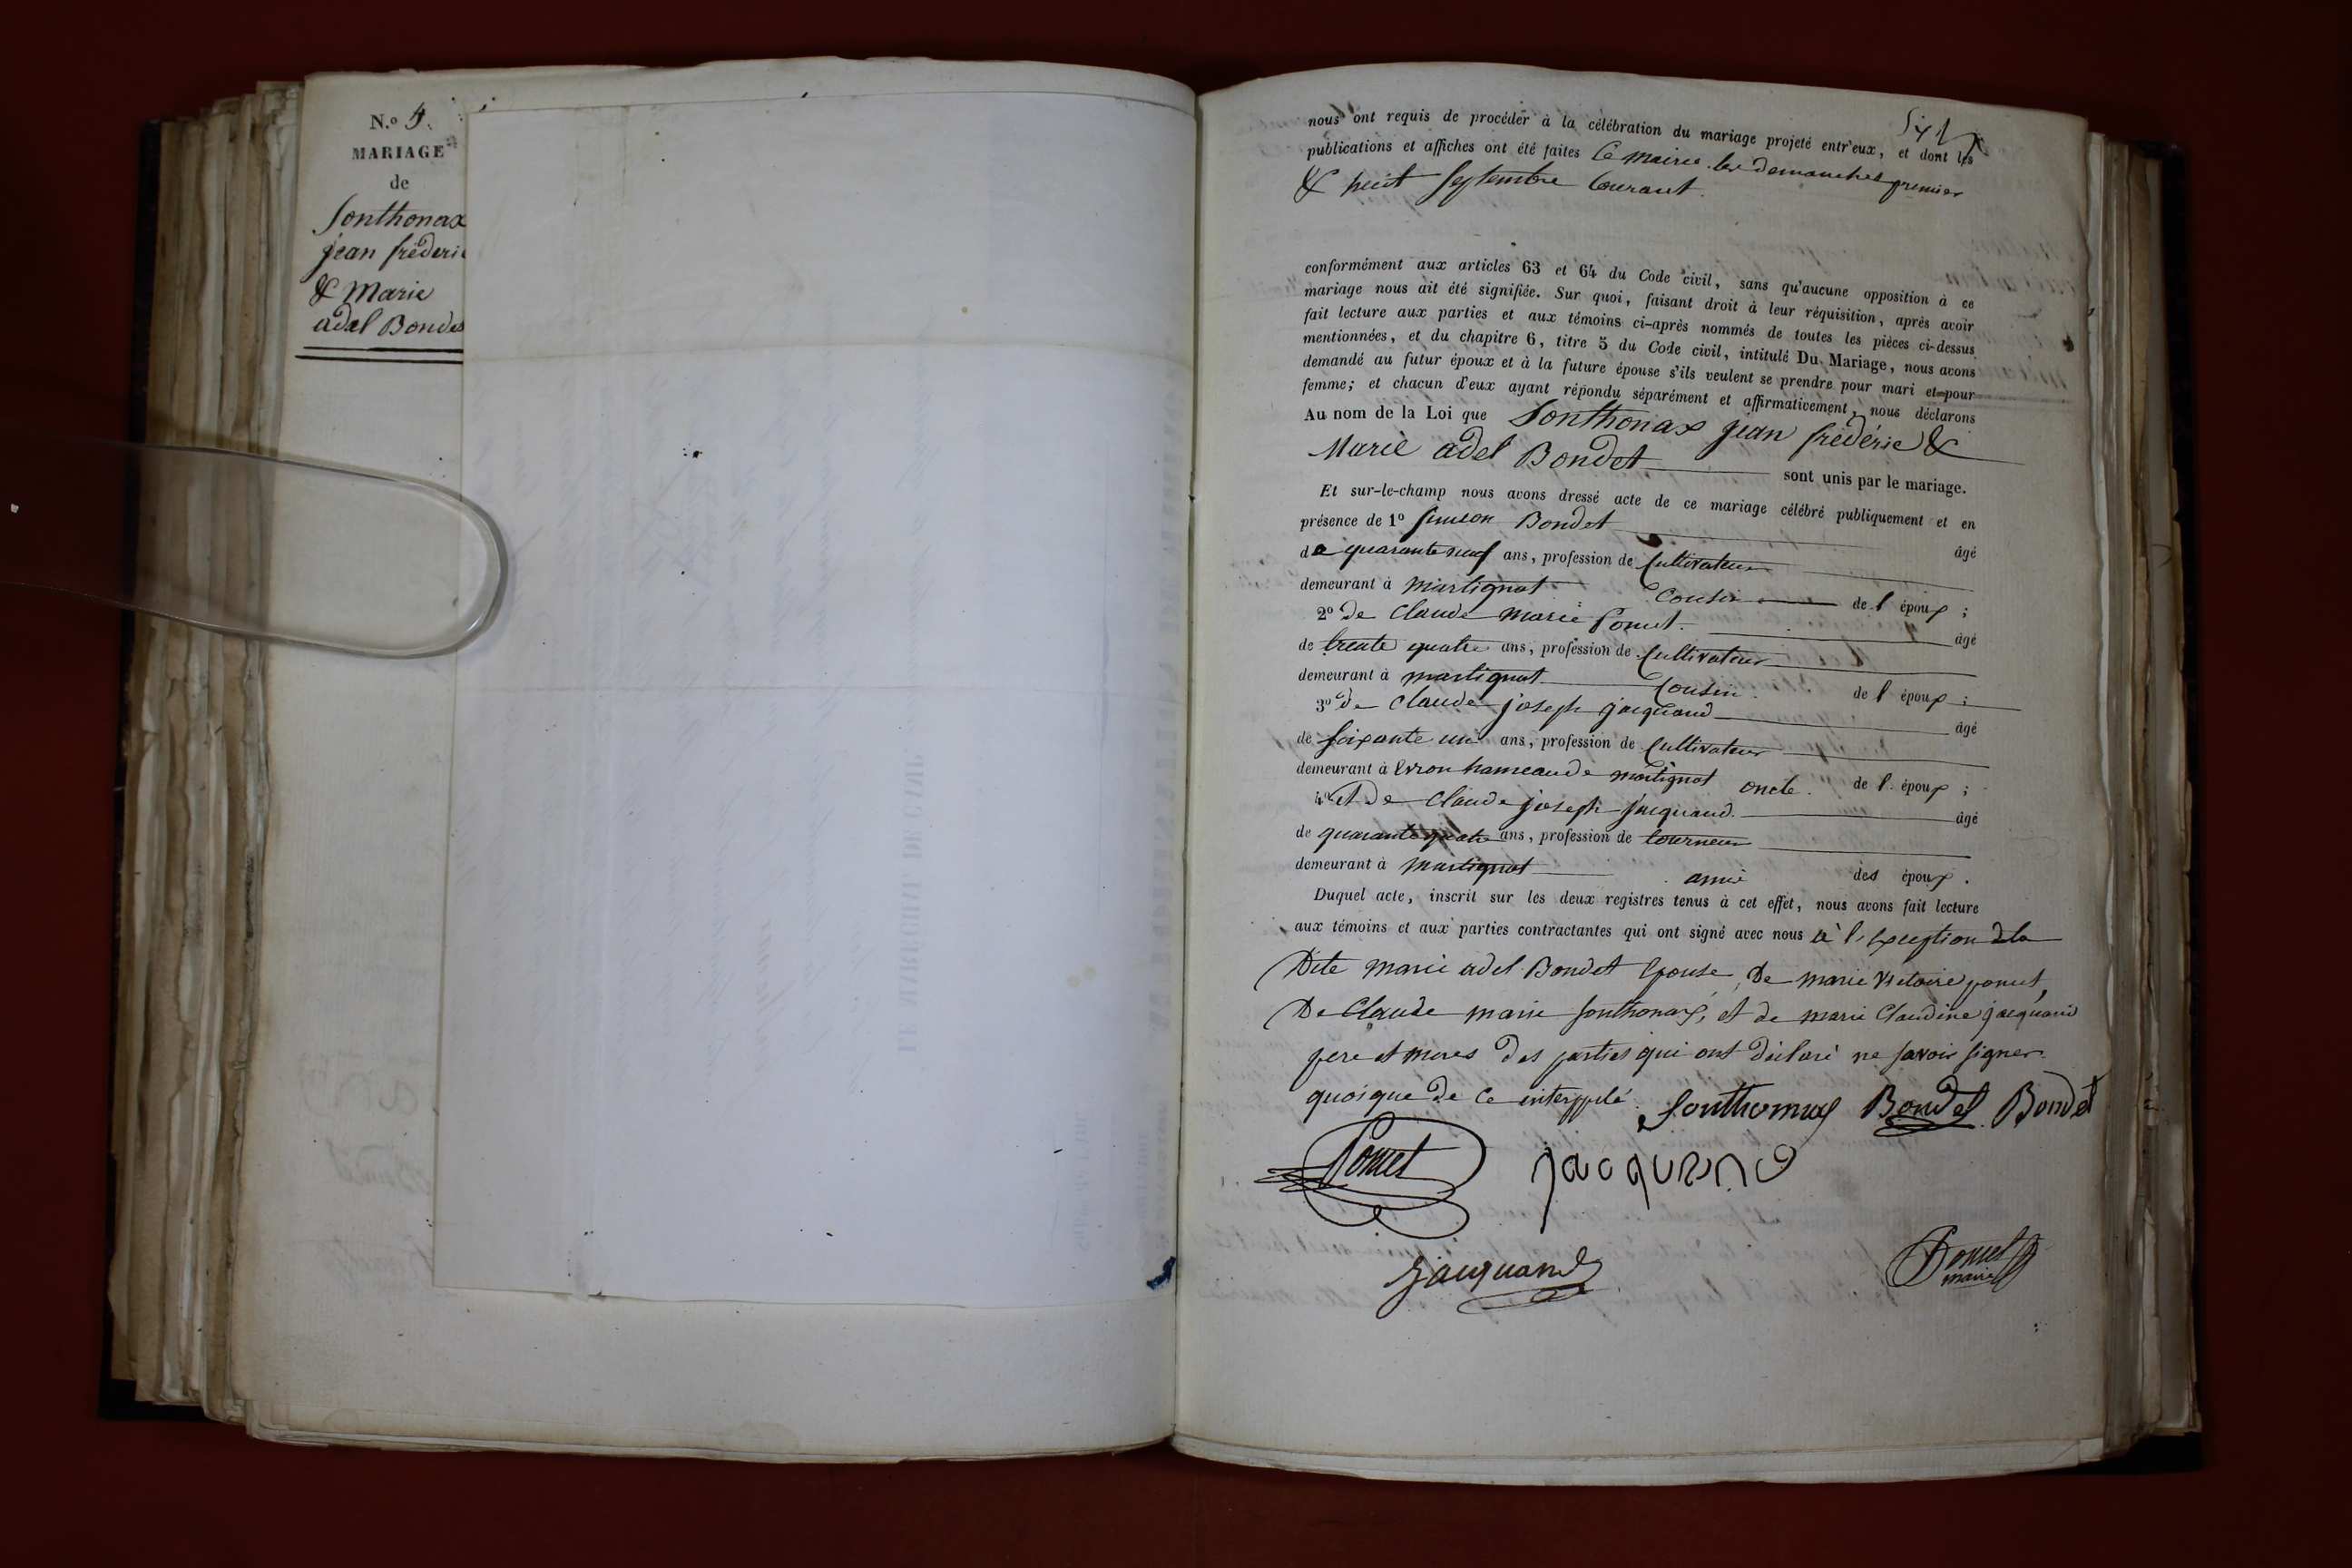 N.o 5.
MARIAGE
de
Sonthonax
jean fréderi
& Marie
adel Bondet
Six
nous ont requis de procéder à la célébration du mariage projeté entr'eux, et dont les
publications et affiches ont été faites Ce mairie les demanches premier
& huit Septembre Courant.
conformément aux articles 63 et 64 du Code civil, sans qu'aucune opposition à ce
mariage nous ait été signifiée. Sur quoi, faisant droit à leur réquisition, après avoir
fait lecture aux parties et aux témoins ci-après nommés de toutes les pièces ci-dessus
mentionnées, et du chapitre 6, titre 5 du Code civil, intitulé Du Mariage, nous avons
demandé au futur époux et à la future épouse s'ils veulent se prendre pour mari et pour
femme; et chacun d'eux ayant répondu séparément et affirmativement, nous déclarons
Au nom de la Loi que Sonthonax jean frédéric &
Marie adel Bondet sont unis par le mariage.
Et sur-le-champ nous avons dressé acte de ce mariage célébré publiquement et en
présence de 1º Simeon Bondet âgé
de quarante neuf ans, profession de Cultivateur
demeurant à Martignat Cousin de l époux ;
2º de Claude Marie Ponut âgé
de trente quatre ans, profession de Cultivateur
demeurant à martignat Cousin de l époux ;
3º de Claude joseph jacquand âgé
de soixante un ans, profession de Cultivateur
demeurant à Evron hameau de martignat oncle de l époux ;
4º et de Claude joseph jacquand âgé
de quarante quatre ans, profession de tourneur
demeurant à Martignat amie des époux.
Duquel acte, inscrit sur les deux registres tenus à cet effet, nous avons fait lecture
aux témoins et aux parties contractantes qui ont signé avec nous à l'exception dela
Dite marie adel Bondet Epouse, De marie victoire ponut,
De Claude marie Sonthonax, et de marie Claudine jacquand
pere et meres des parties qui ont déclaré ne savoir signer
quoique de ce interpellé. Sonthonax Bondet Bondet
Ponut jacquand
Jacquand Ponut
maire